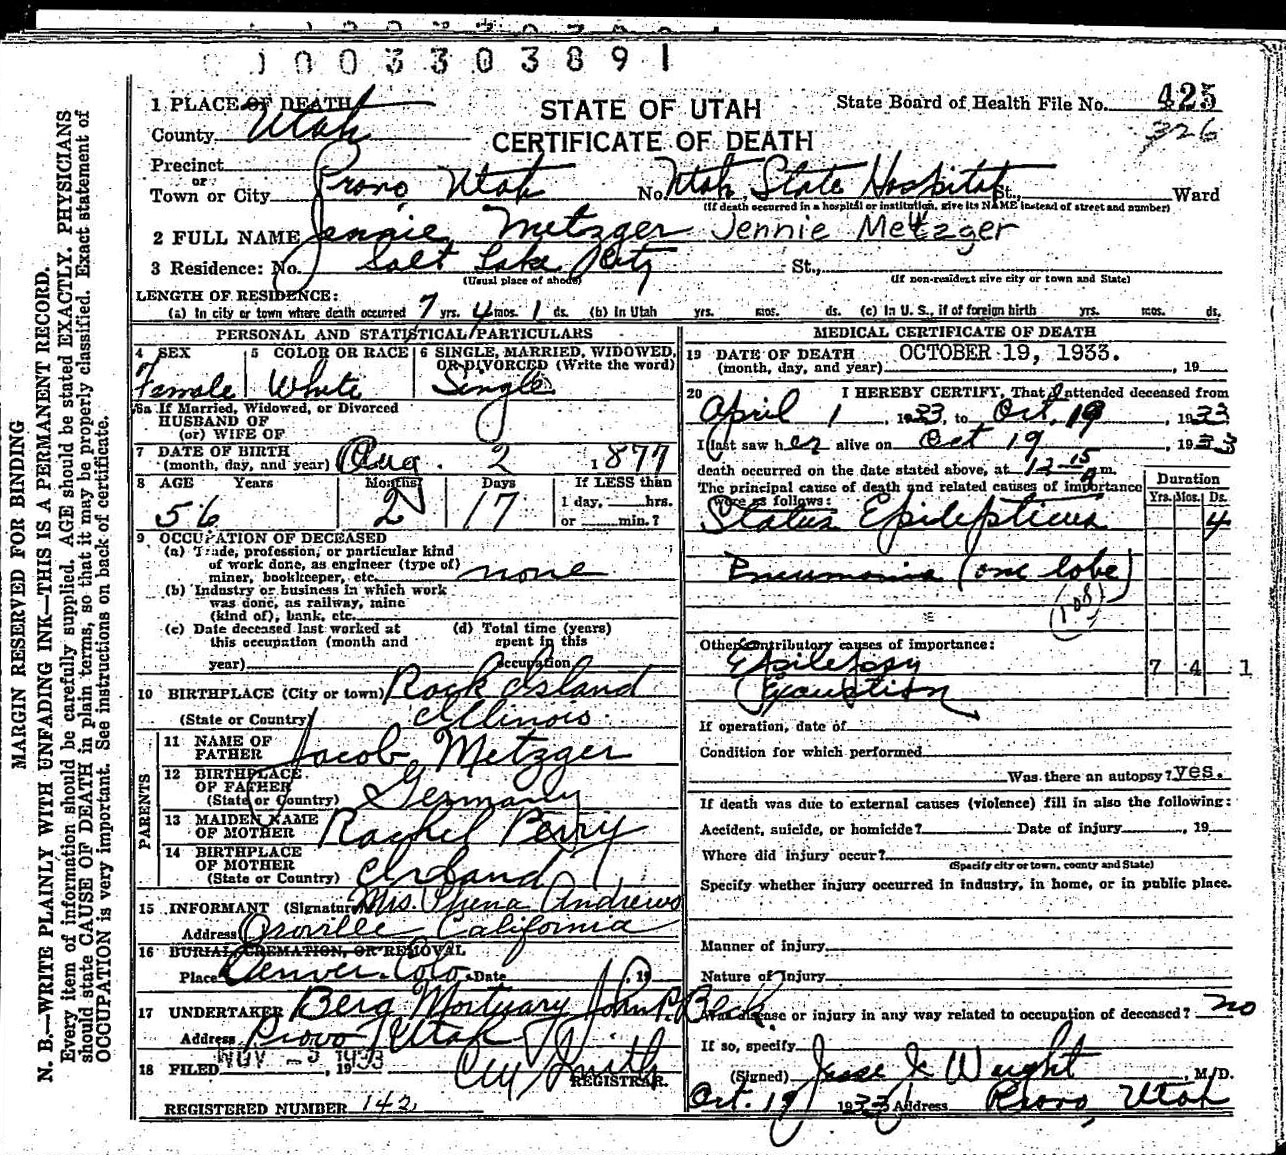 1003303891
1 PLACE OF DEATH
STATE OF UTAH
State Board of Health File No. 425
County Utah
CERTIFICATE OF DEATH
326
Precinct
or
Town or City Provo Utah No. Utah State Hospital St., Ward
(If death occurred in a hospital or institution, give its NAME instead of street and number)
2 FULL NAME Jennie Metzger Jennie Metzger
3 Residence: No. Salt Lake City St.,
(Usual place of abode) (If non-resident give city or town and State)
LENGTH OF RESIDENCE:
(a) In city or town where death occurred 7 yrs. 4 mos. 1 ds. (b) In Utah yrs. mos. ds. (c) In U. S., if of foreign birth yrs. mos. ds.
PERSONAL AND STATISTICAL PARTICULARS
4 SEX Female
5 COLOR OR RACE White
6 SINGLE, MARRIED, WIDOWED, OR DIVORCED (Write the word) Single
6a If Married, Widowed, or Divorced
HUSBAND OF
(or) WIFE OF
7 DATE OF BIRTH
(month, day, and year) Aug. 2 1877
8 AGE Years Months Days If LESS than
1 day, hrs.
56 2 17 or min.?
9 OCCUPATION OF DECEASED
(a) Trade, profession, or particular kind
of work done, as engineer (type of)
miner, bookkeeper, etc. none
(b) Industry or business in which work
was done, as railway, mine
(kind of), bank, etc.
(c) Date deceased last worked at
this occupation (month and
year)
(d) Total time (years)
spent in this
occupation
10 BIRTHPLACE (City or town) Rock Island
(State or Country) Illinois
PARENTS
11 NAME OF
FATHER Jacob Metzger
12 BIRTHPLACE
OF FATHER
(State or Country) Germany
13 MAIDEN NAME
OF MOTHER Rachel Perry
14 BIRTHPLACE
OF MOTHER
(State or Country) Irland
15 INFORMANT (Signature) Mrs. Andrews
Address Oroville California
16 BURIAL, CREMATION, OR REMOVAL
Place Denver Colo. Date , 19
17 UNDERTAKER Berg Mortuary John P. Beck
Address Provo Utah
18 FILED NOV -3 1933, 19
Smith
REGISTRAR.
REGISTERED NUMBER 142
MEDICAL CERTIFICATE OF DEATH
19 DATE OF DEATH OCTOBER 19, 1933.
(month, day, and year) , 19
20 I HEREBY CERTIFY, That I attended deceased from
April 1, 1933, to Oct. 19, 1933
I last saw her alive on Oct 19, 1933
death occurred on the date stated above, at 12 15 m.
The principal cause of death and related causes of importance
were as follows:
Duration
Yrs. Mos. Ds.
Status Epilepticus 4
Pneumonia (one lobe)
(108)
Other contributory causes of importance:
Epilepsy 7 4 1
Exaustion
If operation, date of
Condition for which performed
Was there an autopsy? yes.
If death was due to external causes (violence) fill in also the following:
Accident, suicide, or homicide? Date of injury , 19
Where did injury occur?
(Specify city or town, county and State)
Specify whether injury occurred in industry, in home, or in public place.
Manner of injury
Nature of Injury
Was disease or injury in any way related to occupation of deceased? no
If so, specify
(Signed) Jesse J. Weight, M.D.
Oct. 19 1933 Address Provo, Utah
MARGIN RESERVED FOR BINDING
N. B.—WRITE PLAINLY WITH UNFADING INK—THIS IS A PERMANENT RECORD.
Every item of information should be carefully supplied. AGE should be stated EXACTLY. PHYSICIANS
should state CAUSE OF DEATH in plain terms, so that it may be properly classified. Exact statement of
OCCUPATION is very important. See instructions on back of certificate.